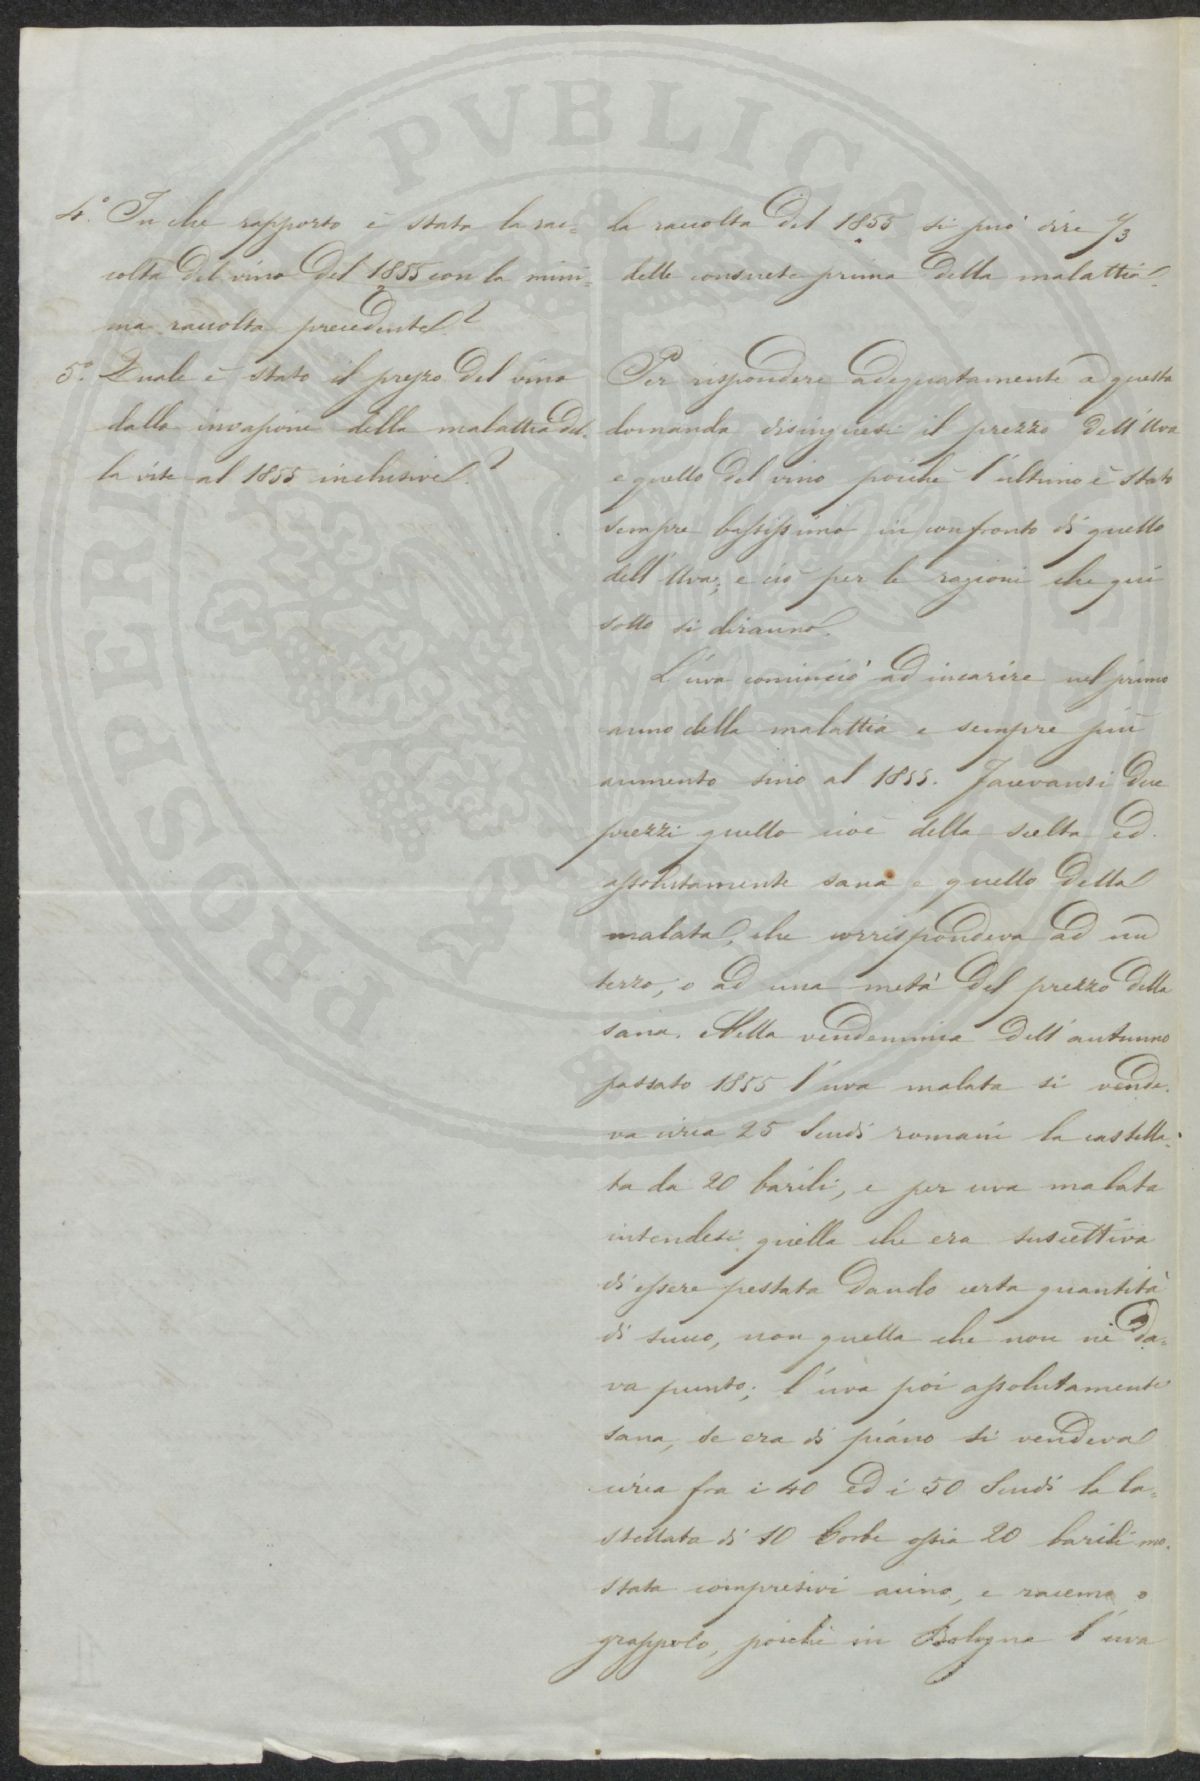 4.° In che rapporto è stata la rac=
colta del vino del 1855 con la mini=
ma raccolta precedente?
la raccolta del 1855 si può dire 1/3
delle consuete prima della malattia.
5.° Quale è stato il prezzo del vino
dalla invasione della malattia del=
la vite al 1855 inclusive?
Per rispondere adeguatamente a questa
domanda disinguesi il prezzo dell'Uva
e quello del vino poichè l'ultimo è stato
sempre bassissimo in confronto di quello
dell'Uva; e ciò per le ragioni che qui
sotto si diranno.
L'uva cominciò ad incarire nel primo
anno della malattia e sempre più
aumento sino al 1855. Facevansi due
prezzi quello cioè della scelta ed
assolutamente sana e quello della
malata, che corrispondeva ad un
terzo, o ad una metà del prezzo della
sana. Nella vendemmia dell'autunno
passato 1855 l'uva malata si vende=
va circa 25 Scudi romani la castella=
ta da 20 barili, e per uva malata
intendesi quella che era suscettiva
di essere pestata dando certa quantità
di succo, non quella che non ne da=
va punto; l'uva poi assolutamente
sana, se era di piano si vendeva
circa fra i 40 ed i 50 Scudi la Ca=
stellata di 10 Corbe ossia 20 barili mo=
stata compresivi acino, e racemo o
grappolo, poichè in Bologna l'uva
PVBLICA
PROSPERI